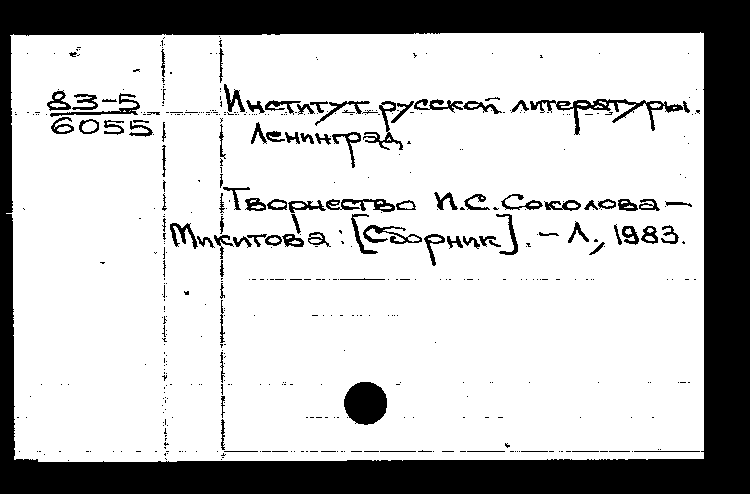 83-5
6055
Институт русской литературы.
Ленинград.
Творчество И.С. Соколова-
Микитова: [Сборник]. - Л., 1983.